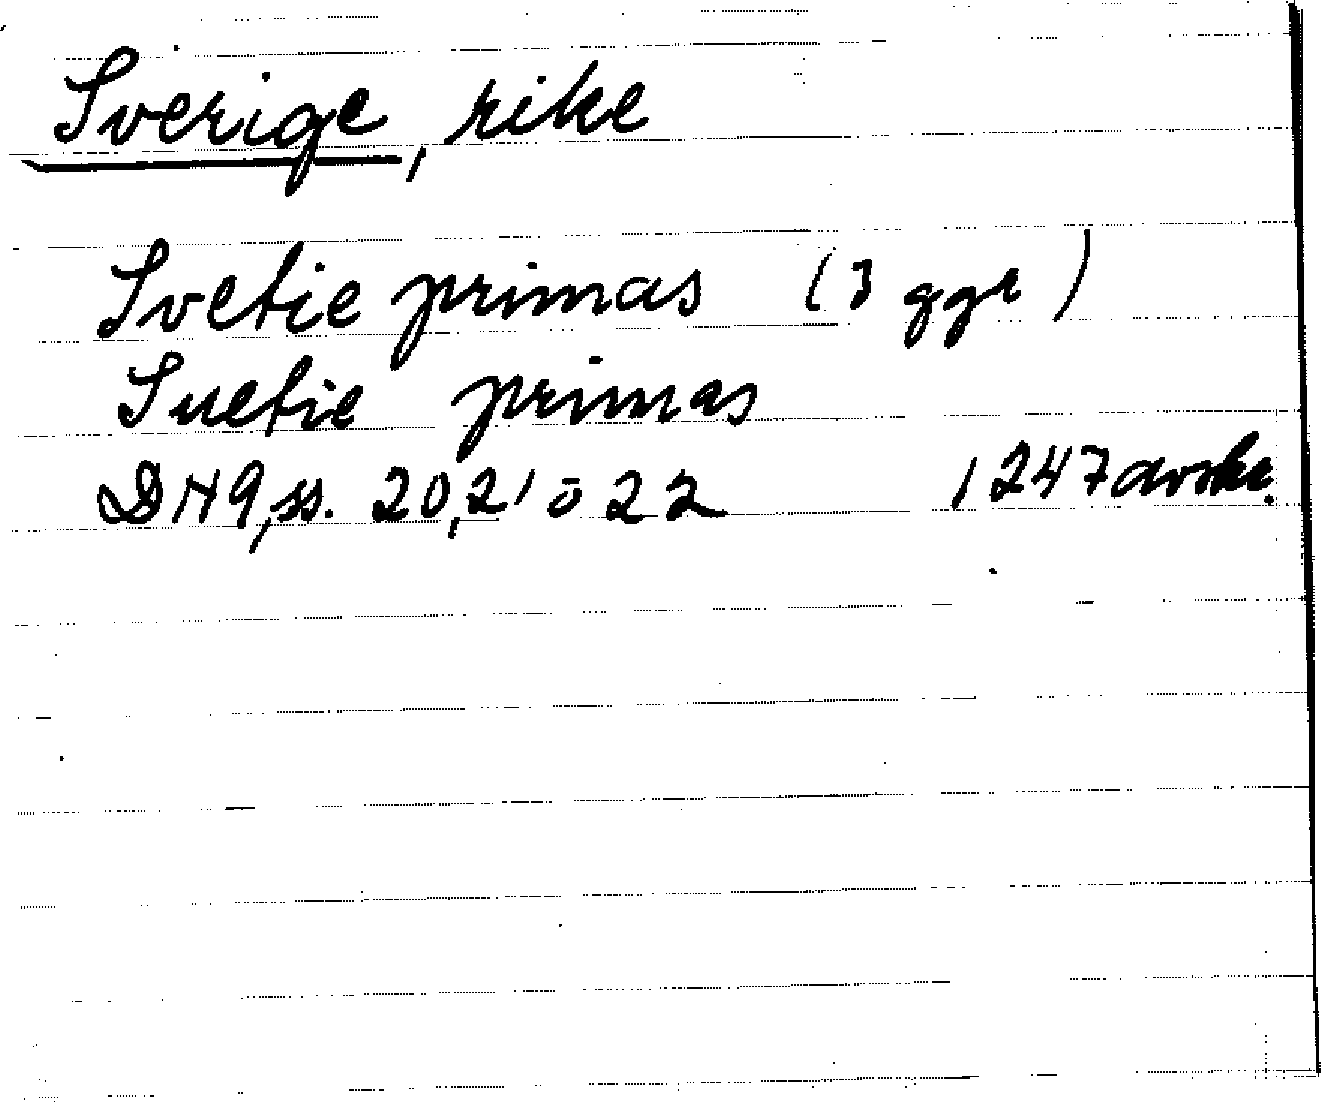 Sverige, rike
Svetie primas (3 ggr)
Suetie primas
DN9, ss. 20, 21 o 22 1247 avskr.